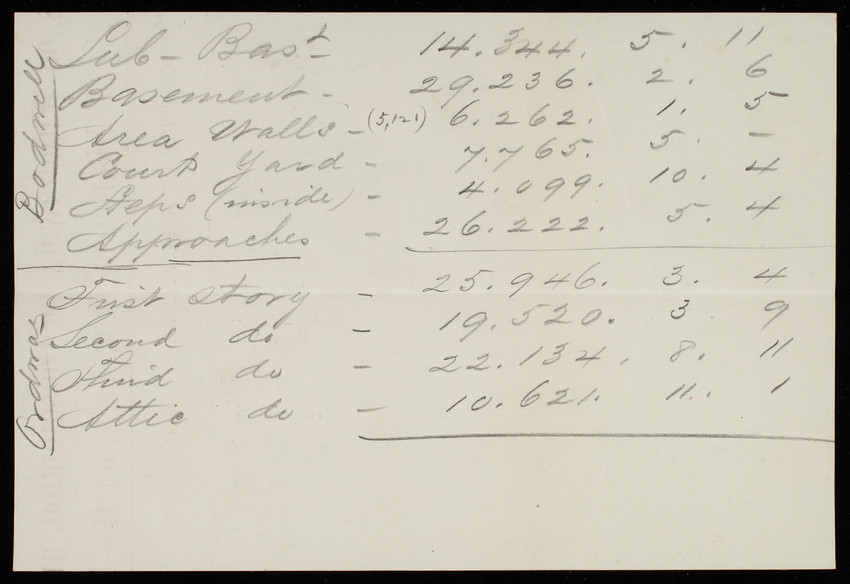 Bodwell
Sub-Bast - 14.344. 5. 11
Basement - 29.236. 2. 6
Area Walls - (5,121) 6.262. 1. 5
Court Yard - 7.765. 5. -
Steps (inside) - 4.099. 10. 4
Approaches - 26.222. 5. 4
Ordway
First story - 25.946. 3. 4
Second do - 19.520. 3 9
Third do - 22.134. 8. 11
Attic do - 10.621. 11. 1